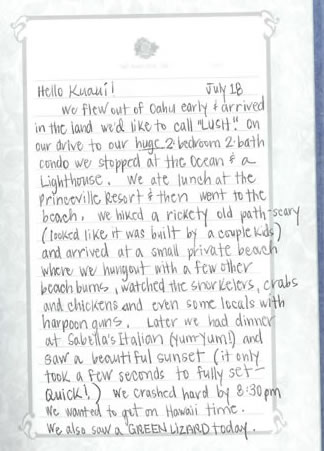 Hello Kuauii! July 18
We flew out of Oahu early & arrived
in the land we'd like to call "LUSH!" On
our drive to our huge 2-bedroom 2-bath
condo we stopped at the Ocean & a
Lighthouse. We ate lunch at the
Princeville Resort & then went to the
beach. We hiked a rickety old path-scary
(looked like it was built by a couple kids)
and arrived at a small private beach
where we hungout with a few other
beach bums, watched the snorkelers, crabs
and chickens and even some locals with
harpoon guns. Later we had dinner
at Sabella's Italian (yum yum!) and
saw a beautiful sunset (it only
took a few seconds to fully set-
Quick!) We crashed hard by 8:30pm
We wanted to get on Hawaii time.
We also saw a GREEN LIZARD today.